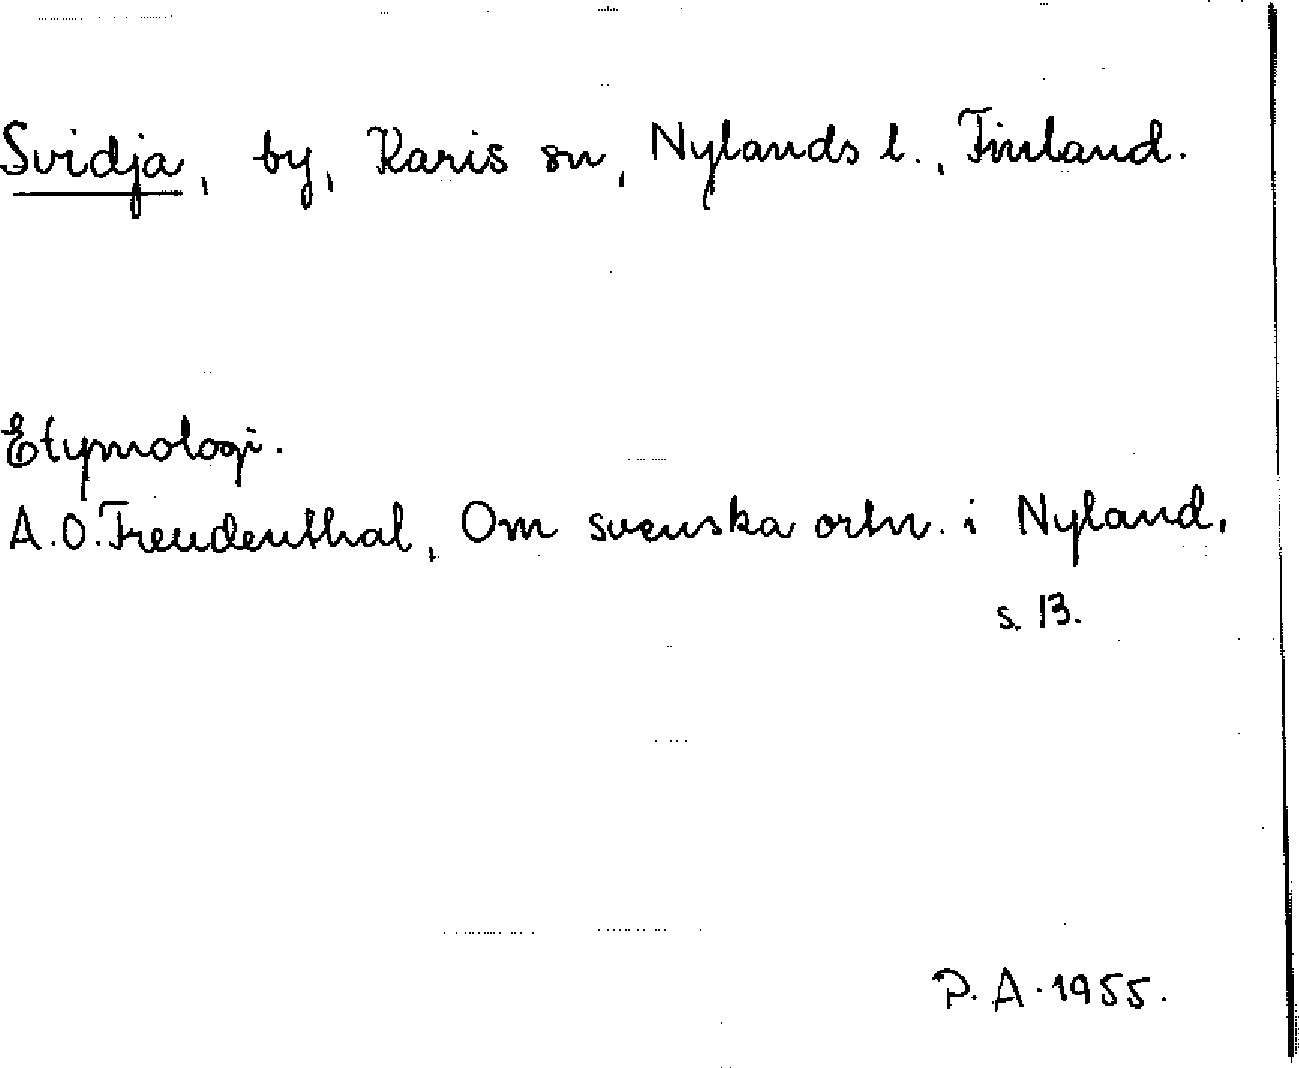 Svidja, by, Karis sn, Nylands l., Finland.
Etymologi.
A.O.Freudenthal, Om svenska ortn. i Nyland,
s. 13.
P.A. 1955.